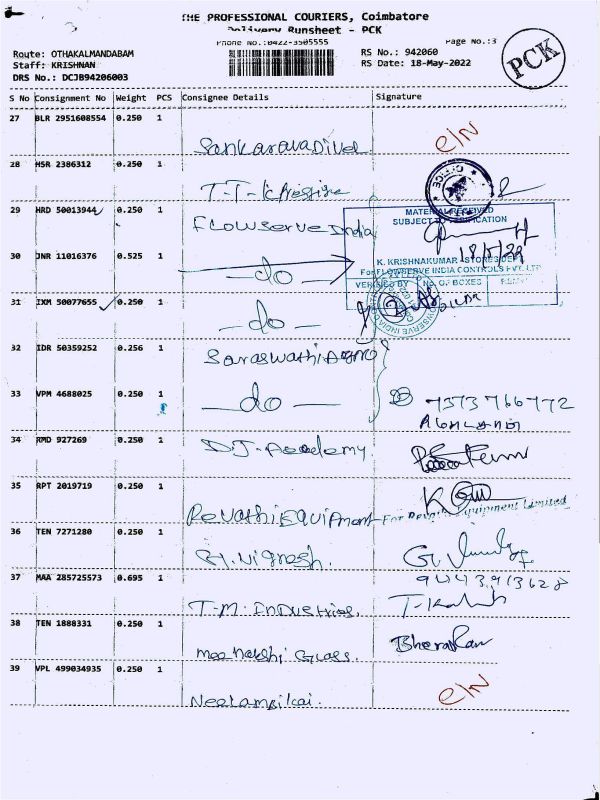 3
THE PROFESSIONAL COURIERS, Coimbatore
Delivery Runsheet - PCK
Phone No.:0422-3505555
Page No.:3
Route: OTHAKALMANDABAM
RS No.: 942060
Staff: KRISHNAN
RS Date: 18-May-2022
DRS No.: DCJB94206003
PCK
S No Consignment No Weight PCS Consignee Details Signature
27 BLR 2951608554 0.250 1
e/n
28 HSR 2386312 0.250 1
OFFICE
29 HRD 50013944 0.250 1
Flowserve India
MATERIAL RECEIVED
SUBJECT TO VERIFICATION
18/5/22
30 JNR 11016376 0.525 1
- do -
K. KRISHNAKUMAR - STORES DEPT
For FLOWSERVE INDIA CONTROLS PVT. LTD
VERIFIED BY No. OF BOXES
31 IXM 50077655 0.250 1
- do -
32 IDR 50359252 0.256 1
Saraswathi Agro
33 VPM 4688025 0.250 1
- do -
7373766772
34 RMD 927269 0.250 1
DJ. Academy
35 RPT 2019719 0.250 1
Revathi Equipment
For Revathi Equipment Limited
36 TEN 7271280 0.250 1
G. Vignesh.
9443913628
37 MAA 285725573 0.695 1
T.M. Industries.
38 TEN 1888331 0.250 1
Meenakshi Glass.
Bharathan
39 VPL 499034935 0.250 1
Neelambikai.
e/n